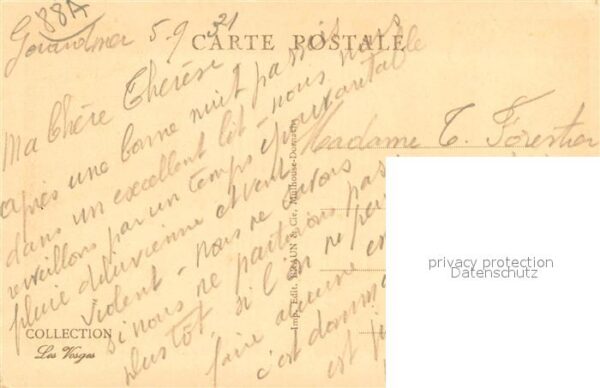 88A
Gérardmer 5-9 31
CARTE POSTALE
Ma Chère Thérèse,
après une bonne nuit passée
dans un excellent lit - nous nous
réveillons par un temps épouvantable
pluie diluvienne et vent
violent - nous ne savons
si nous ne partirons pas
plus tôt, si l'on ne peu
faire aucune
c'est domma
est
Madame T. Forestier
Imp. Edit. BRAUN & Cie, Mulhouse-Dornach
COLLECTION
Les Vosges
privacy protection
Datenschutz